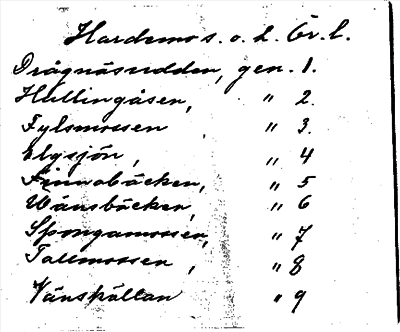 Hardemo s. o. h. Ör. l.
Drågnäsudden, gen. 1.
Hullingåsen, " 2.
Fylsmossen " 3.
Elgsjön, " 4
Finnabäcken, " 5
Wänsbäcken " 6
Spongamossen, " 7
Tallmossen, " 8
Vänskällan " 9